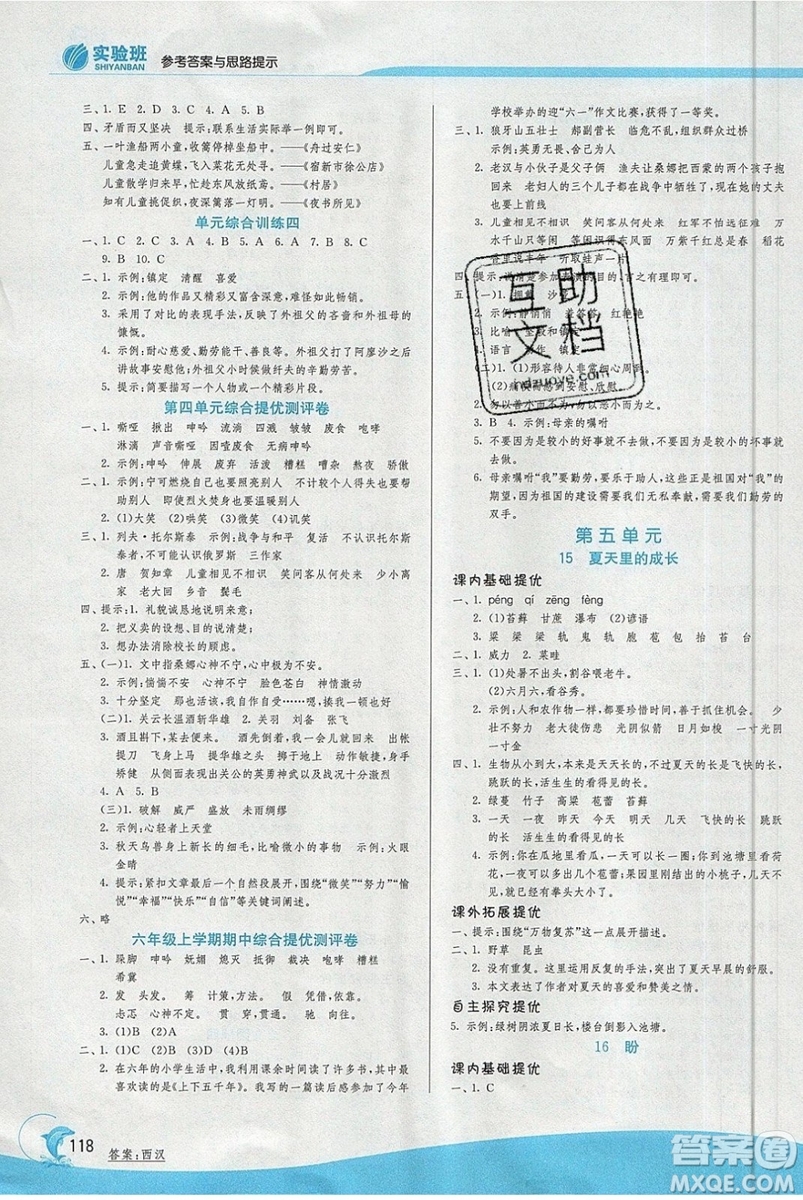 实验班
SHIYANBAN
参考答案与思路提示
三、1. E 2. D 3. C 4. A 5. B
四、矛盾而又坚决 提示:联系生活实际举一例即可。
五、一叶渔船两小童,收篙停棹坐船中。——《舟过安仁》
儿童急走追黄蝶,飞入菜花无处寻。——《宿新市徐公店》
儿童散学归来早,忙趁东风放纸鸢。——《村居》
知有儿童挑促织,夜深篱落一灯明。——《夜书所见》
单元综合训练四
一、1. C 2. C 3. B 4. B 5. A 6. A 7. B 8. C
9. B 10. C
二、1. 示例:镇定 清醒 喜爱
2. 示例:他的作品又精彩又富有创意,难怪如此畅销。
3. 采用了对比的表现手法,表现了外祖父的吝啬和外祖母的
慷慨。
4. 示例:耐心慈爱、勤劳能干、善良等。外祖父打了阿廖沙之后,
居然讲故事安慰他;外祖父小时候做纤夫拉船,这些都是表现。
5. 提示:简要描写一个人物或一个精彩片段。
第四单元综合提优测评卷
一、1. 嘶哑 揪出 呻吟 流淌 四溅 皱皱 废食 咆哮
淋漓 声音嘶哑 因噎废食 无病呻吟
2. 示例:呻吟 伸展 废弃 泼洒 糟糕 嘈杂 熬夜 骄傲
二、1. 示例:宁可燃烧自己也要照亮别人 不计较个人得失也要帮
助别人 即使引火焚身也要温暖人间
2. (1)大笑 (2)哄笑 (3)微笑 (4)讥笑
三、1. 列夫·托尔斯泰 示例:战争与和平 复活 不认识托尔斯
泰,不可能认识俄罗斯 三作家
2. 唐 贺知章 儿童相见不相识 笑问客从何处来 少小离
家 老大回 乡音 鬓毛
四、提示:1. 礼貌诚恳地说明来意;
2. 把兴建的设想、目的说清楚;
3. 想办法消除校长的顾虑。
五、(一)1. 文中指桑娜心神不宁,坐也不是,站也不是。
2. 示例:惴惴不安 心神不宁 脸色苍白 神情激动
3. 十分坚定 我都活该,我自作自受……嗯,揍我一顿也好
(二)1. 关云长温酒斩华雄 2. 关羽 刘备 张飞
3. 酒且斟下,某去便来。 酒先倒下 我去去便来 出帐
提刀 飞身上马 提华雄之头 掷于地上 动作、语言 身手
矫健 从侧面表现出关公的英勇神武以及十分激烈
4. A 5. B
(三)1. 破解 威严 盛放 未雨绸缪
2. 示例:心轻者上天堂
3. 秋天鸟兽身上新长的细毛,比喻微小的事物 示例:火眼
金睛
4. 提示:紧扣文章最后一自然段,围绕“微笑”“努力”“愉
悦”“幸福”“快乐”“自信”等关键词阐述。
六、略
六年级上学期期中综合提优测评卷
一、1. 跺脚 呻吟 妩媚 熄灭 抵御 裁决 咆哮 搏斗
希冀
2. 发 头发。 筹 计策,方法。 凭 凭借,依靠。
忐忑 心神不定。 贯 穿,贯通。 驰 使劲赶马。
3. (1)B (2)A
二、1. (1)C (2)D (3)A (4)B
2. 示例:在六年的小学生活中,我利用课余时间读了许多书,其中
喜欢读的是《上下五千年》。我写的一篇读后感被评为今年
学校举办的迎“六一”作文比赛,获得了一等奖。
三、1. 狼牙山五壮士 郝副营长 临危不乱,指挥群众过桥
示例:英勇无畏、舍己为人
2. 老汉与小伙子是父子俩 渔夫让桑娜把西蒙的两个孩子抱
回来 老妇人的三个儿子都在战争中牺牲了,现在她的丈夫
也要上前线
3. 儿童相见不相识 笑问客从何处来 红军不怕远征难 万
水千山只等闲 等闲识得东风面 万紫千红总是春 稻花
香里说丰年 听取蛙声一片
五、(一)
2. 示例:静悄悄 红艳艳
3. 比喻
4. 语言 动作 镇定
(二)1. (1)形容待人非常热情周到。
(2)病
2. 勿以恶小而为之,勿以善小而不为。
3. B 4. 示例:母亲的嘱咐
5. 不要因为是较小的好事就不去做,不要因为是较小的坏事就
去做。
6. 母亲嘱咐“我”要勤劳,要乐于助人,此情此景正是祖国对“我”的
期望,因为祖国的建设需要我们无私奉献,需要我们勤劳的
双手。
第五单元
15 夏天里的成长
课内基础提优
一、1. péng qí zēng fèng
2. (1)苔藓 甘蔗 瀑布 (2)谚语
3. 梁 粱 轨 鬼 轨 胞 苞 包 抬 苔 台
二、1. 威力 2. 菜畦
三、1. (1)处暑不出头,割谷喂老牛。
(2)六月六,看谷秀。
2. 示例:人和农作物一样,要珍惜时间,善于抓住机会。 少
壮不努力 老大徒伤悲 光阴似箭 日月如梭 一寸光阴
一寸金
四、1. 生物从小到大,本来是天天长的,不过夏天的长是飞快的长,
跳跃的长,活生生的看得见的长。
2. 绿蔓 竹子 高粱 苞蕾 苔藓
3. 一天 一夜 一天 一夜 昨天 今天 飞快的长 跳跃
的长 活生生的看得见的长
4. 示例:你在瓜地里看瓜,一天可以长一圈;你到池塘里看荷
叶,昨天还是尖尖的小荷,今天就展开了;你来到果园看小桃子,几天
没见,居然红了。
课外拓展提优
一、提示:围绕“万物复苏”这一句展开描述。
二、1. 野草 昆虫
2. 没有重复。文章运用反复的手法,更突出了夏天早晨的舒服。
3. 本文表达了作者对夏天的喜爱和赞美之情。
自主探究提优
5. 示例:绿树阴浓夏日长,楼台倒影入池塘。
16 盼
课内基础提优
一、1. C
118
答案:西汉
互助文档
hdzuoye.com
答案圈
MXQE.COM